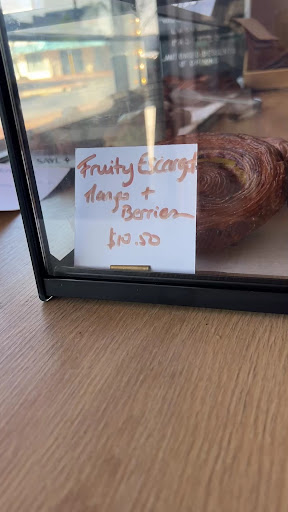 Fruity Escargt
Mango +
Berries
$10.50